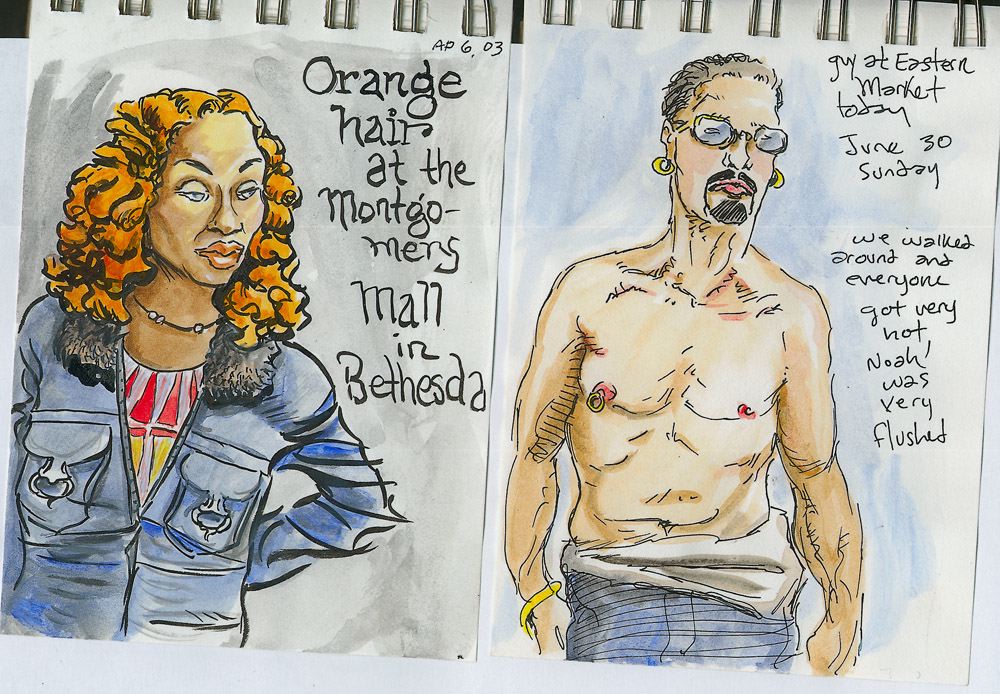 AP 6, 03
Orange
hair
at the
Montgo-
mery
Mall
in
Bethesda
guy at Eastern
Market
today
June 30
Sunday
we walked
around and
everyone
got very
hot,
Noah
was
very
flushed